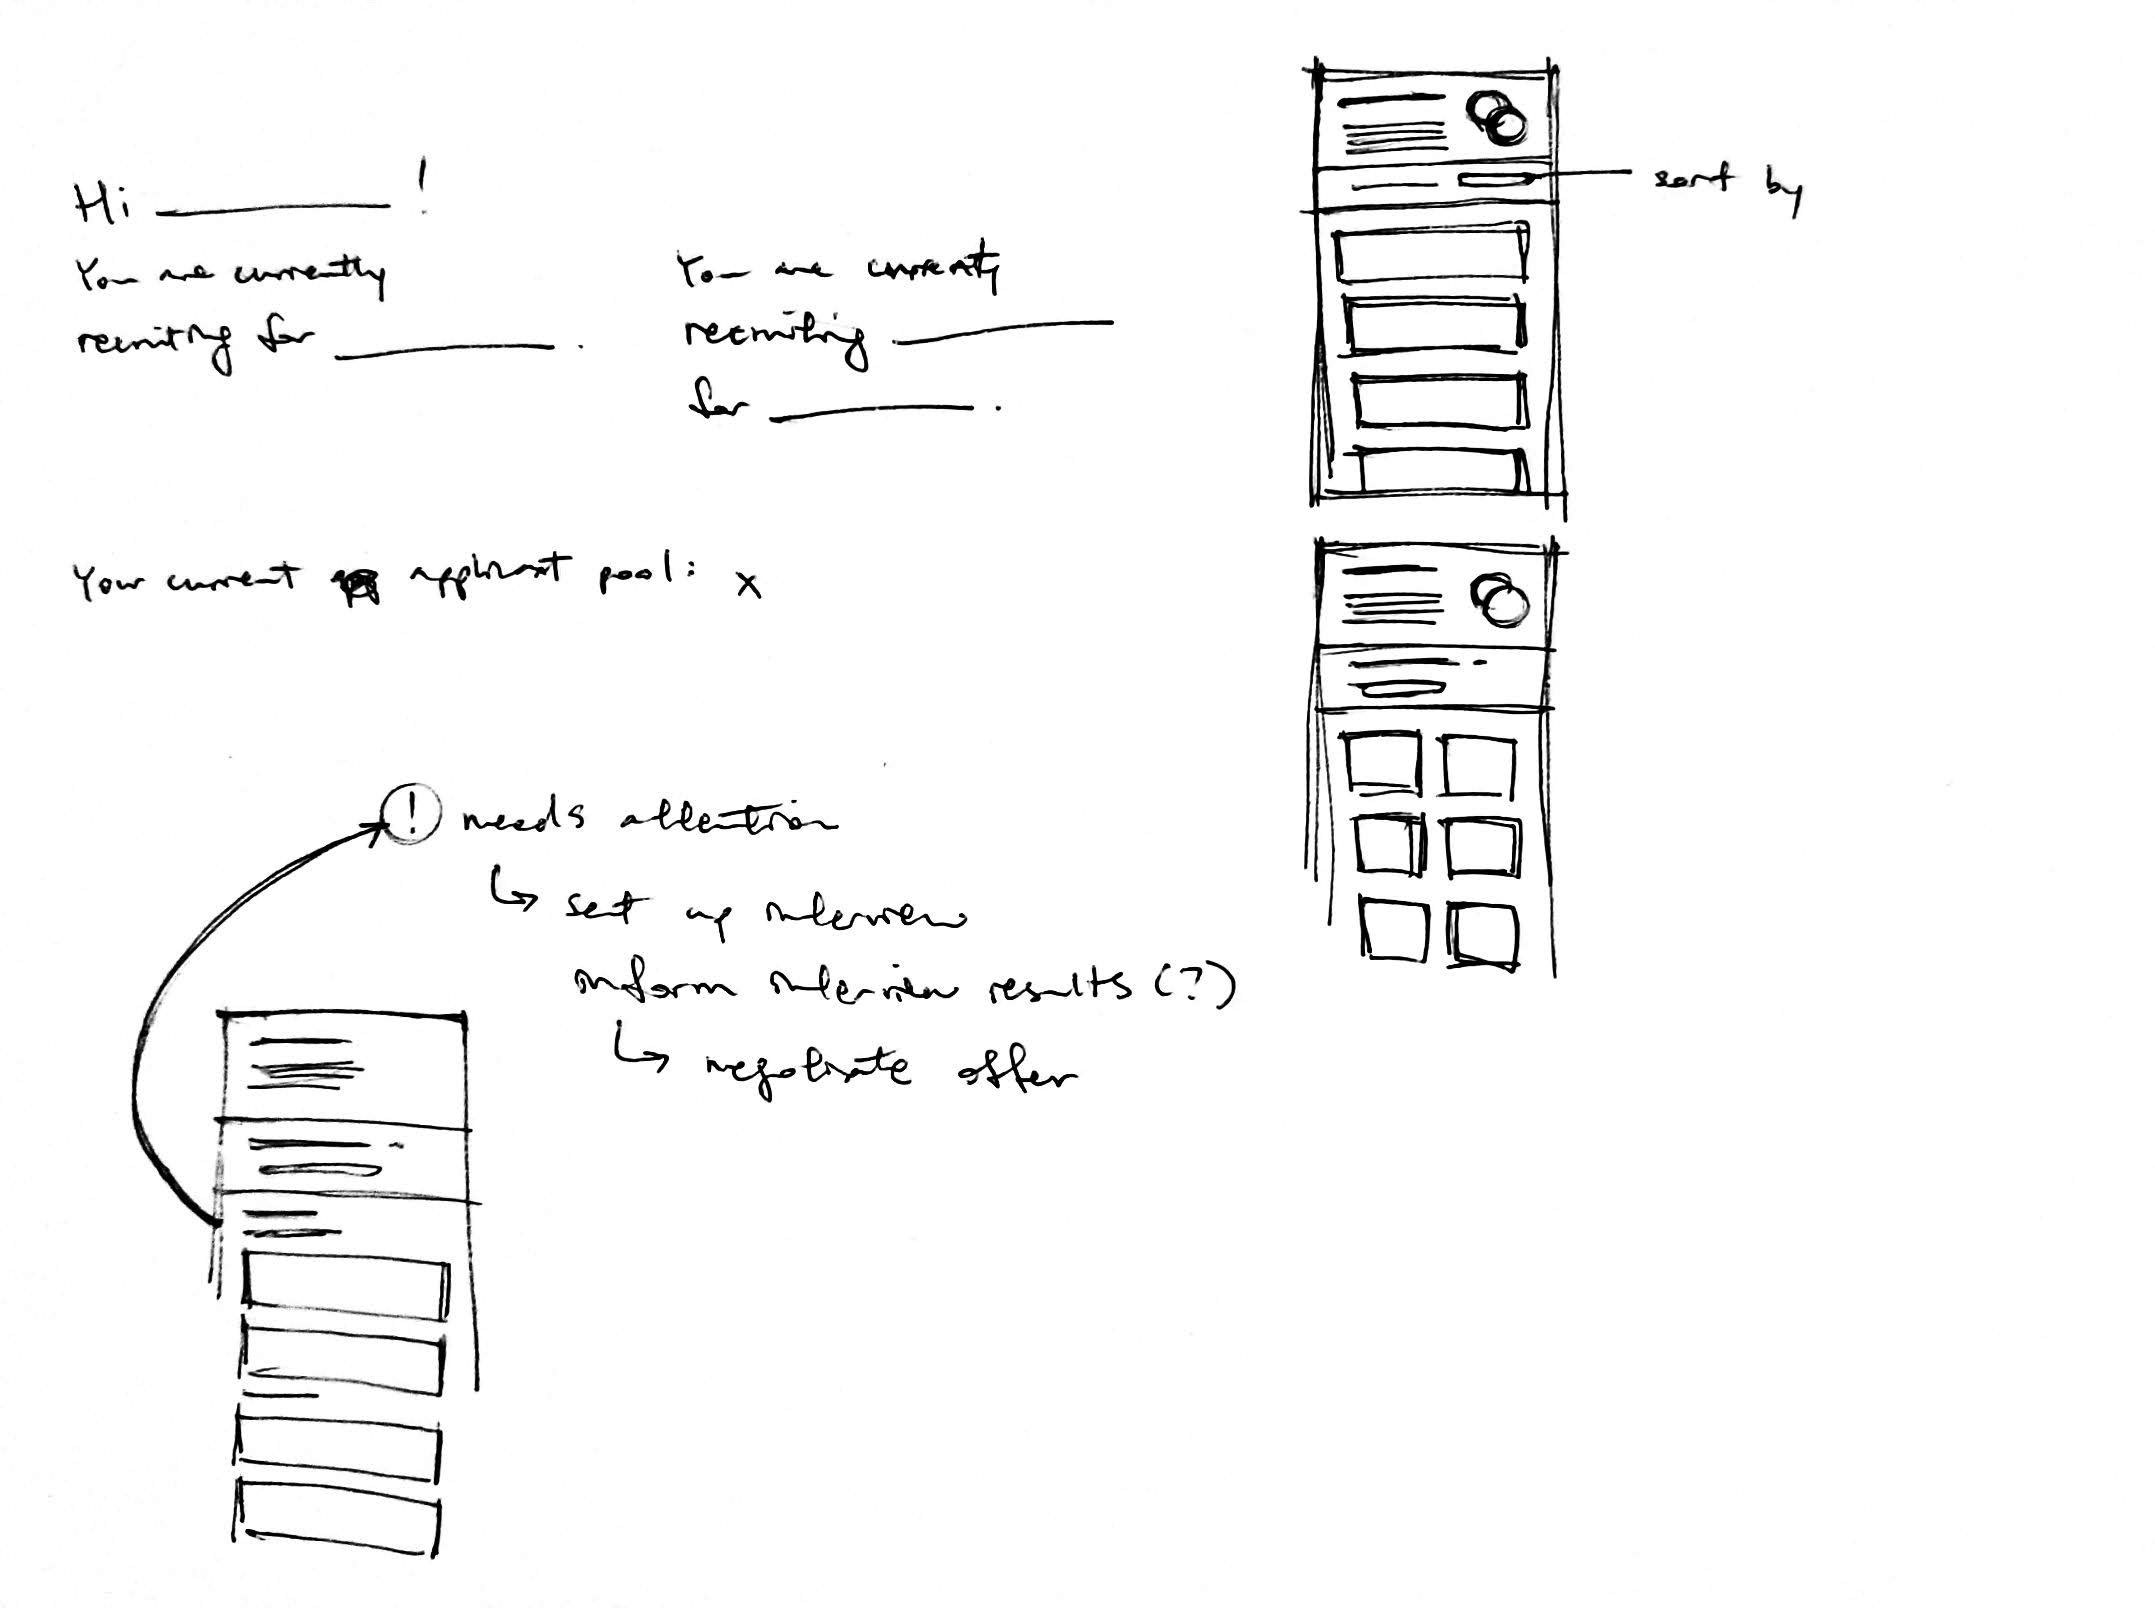 Hi ________ !
You are currently
recruiting for ________ .
You are currently
recruiting ________
for ________ .
Your current applicant pool: x
! needs attention
↳ set up interview
inform interview results (?)
↳ negotiate offer
sort by